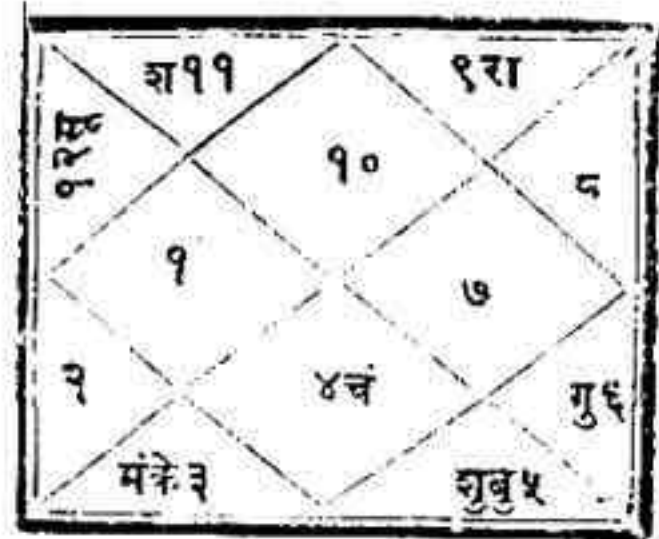 श११
९रा
१२सू
१०
८
१
७
२
४चं
गु६
मंके३
शुबु५